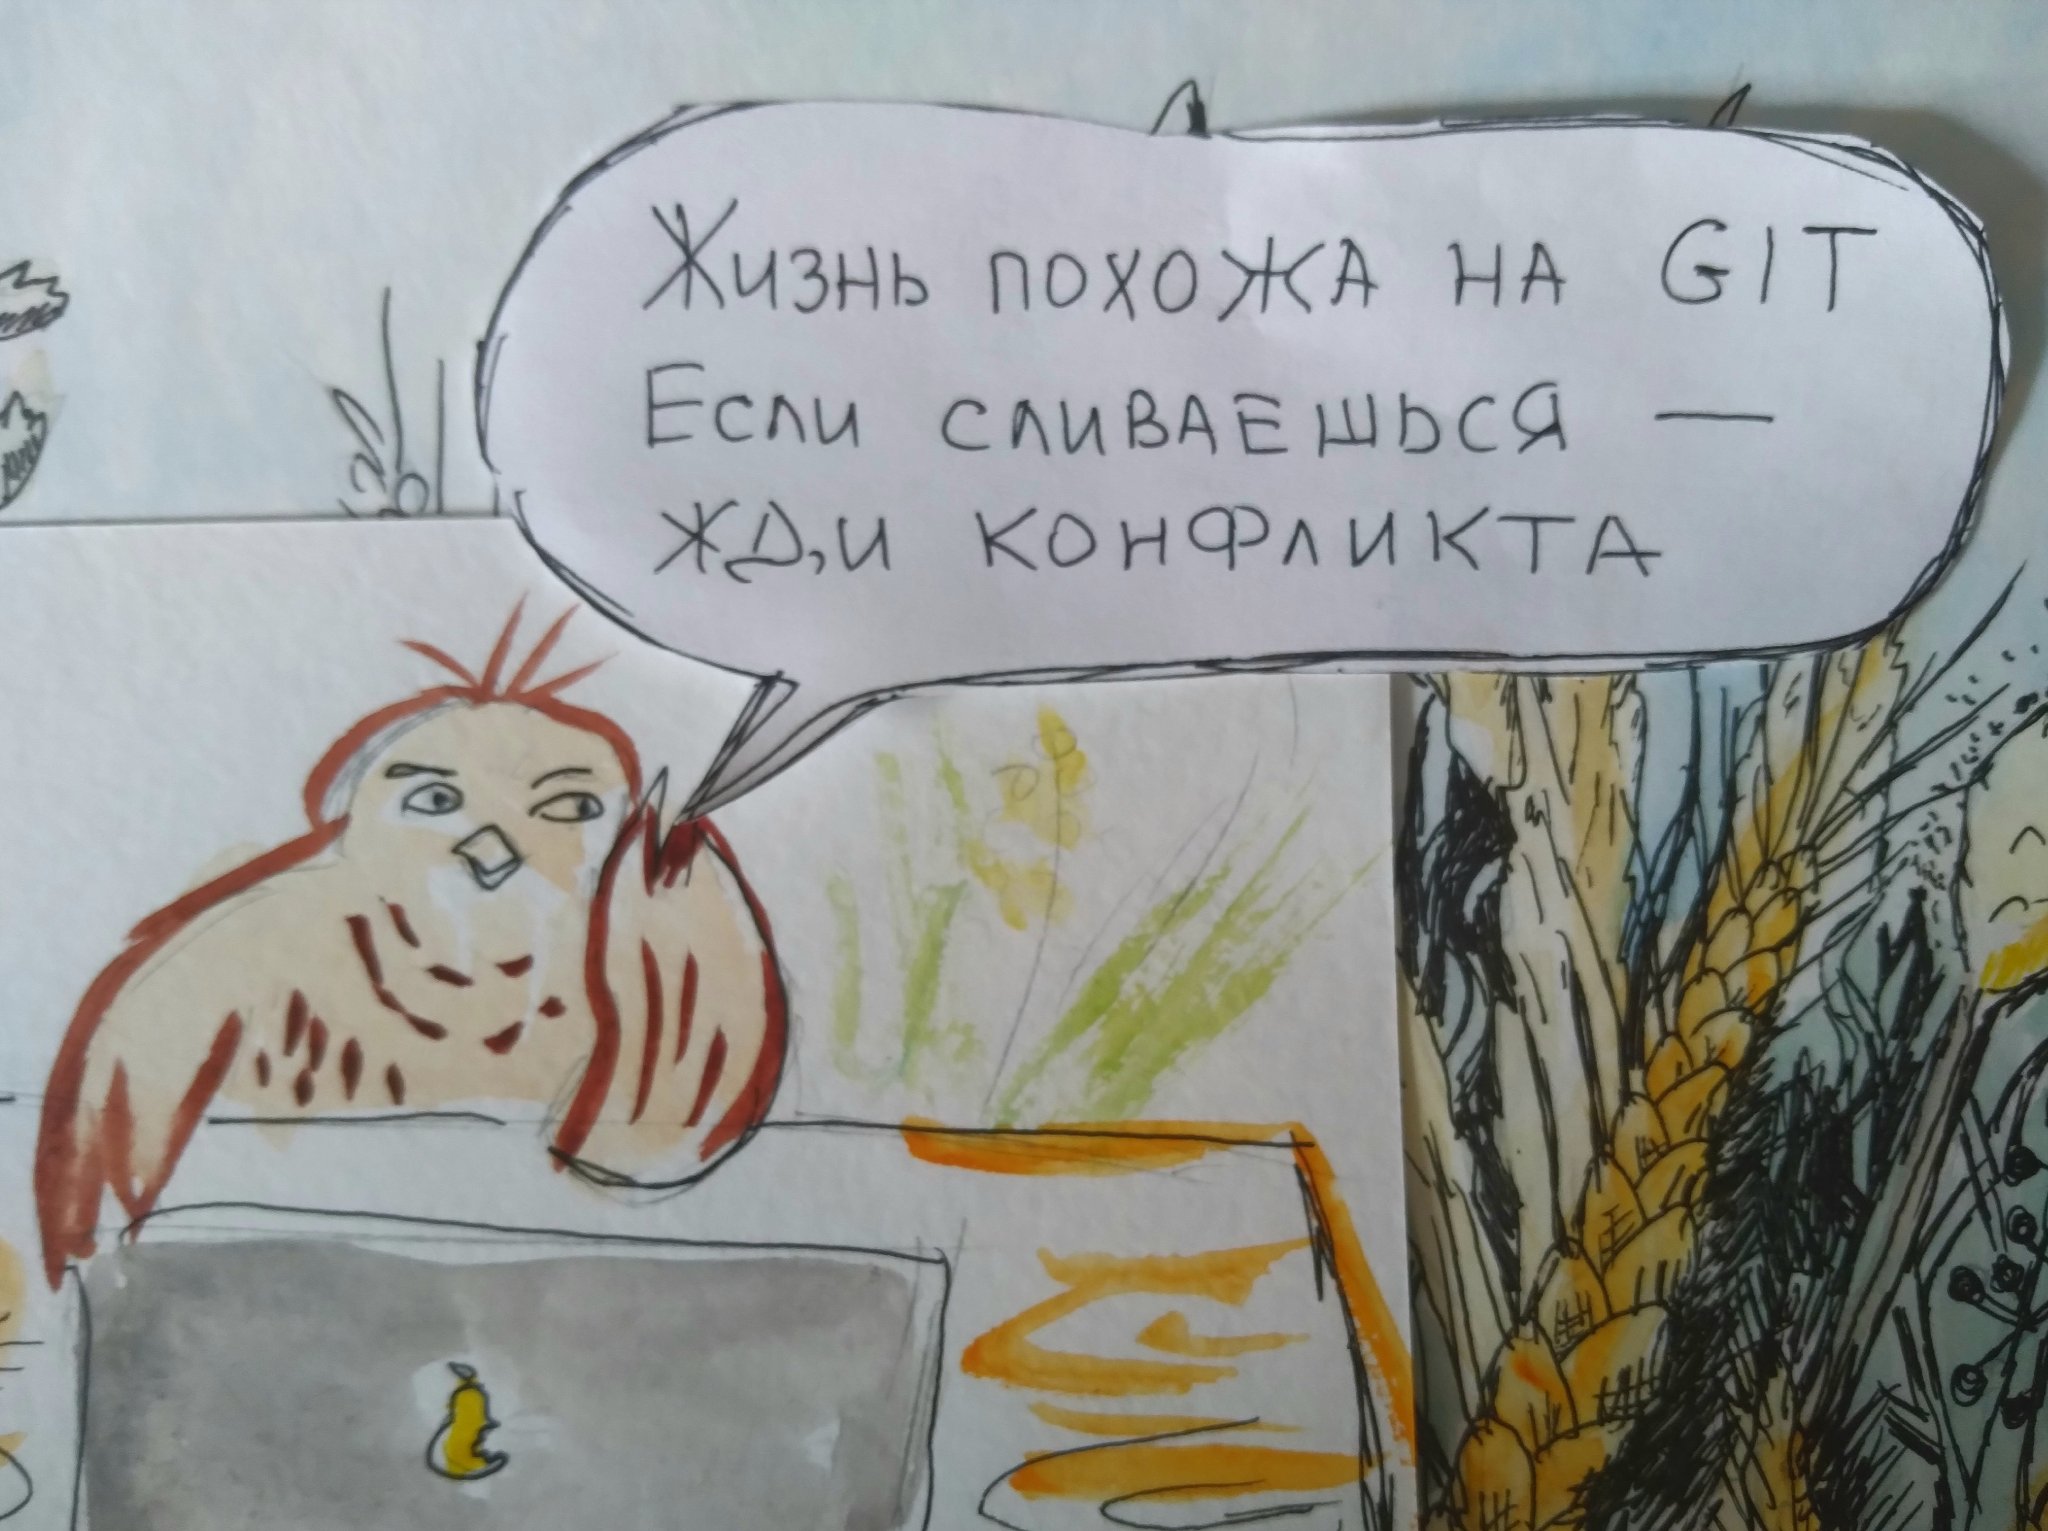 Жизнь похожа на GIT
Если сливаешься —
жди конфликта